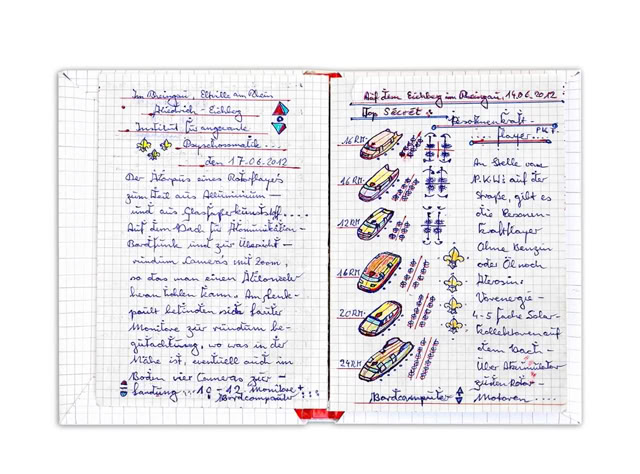 Im Rheingau, Eltville am Rhein
Friedrich - Eichberg
Institut für angewante
Psychosomatik....
den 17.06.2012
Der Korpus eines Rotorflayers
zum Teil aus Alluminium –
und aus Glasfaserkunststoff....
Auf dem Dach für Komunikation –
Bordfunk und zur Übersicht –
rundum Camera's mit Zoom,
so das man einen Kilometer
kann. Am Lenk-
pault befinden sich lauter
Monitore zur rundum be-
gutachtung, wo was in der
Nähe ist, eventuell auch im
Boden vier Cameras zur –
Landung... 10 - 12 Monitore +
Bordcomputer
Auf dem Eichberg im Rheingau, 14.06.2012
Top Secret
Personenkraft –
.... flayer...
P.K.F.
16 RM.
16 RM.
12 RM
16 RM
20 RM.
24 RM
An Stelle von
P.K.W: auf der
Straße, gibt es
die Personen-
Kraftflayer
Ohne Benzin
oder Öl noch
Kerosin:
Vorenergie –
4-5 fache Solar-
Kollektoren auf
dem Dach –
Über Akumulator
zu den Rotor –
Motoren....
Bordcomputer